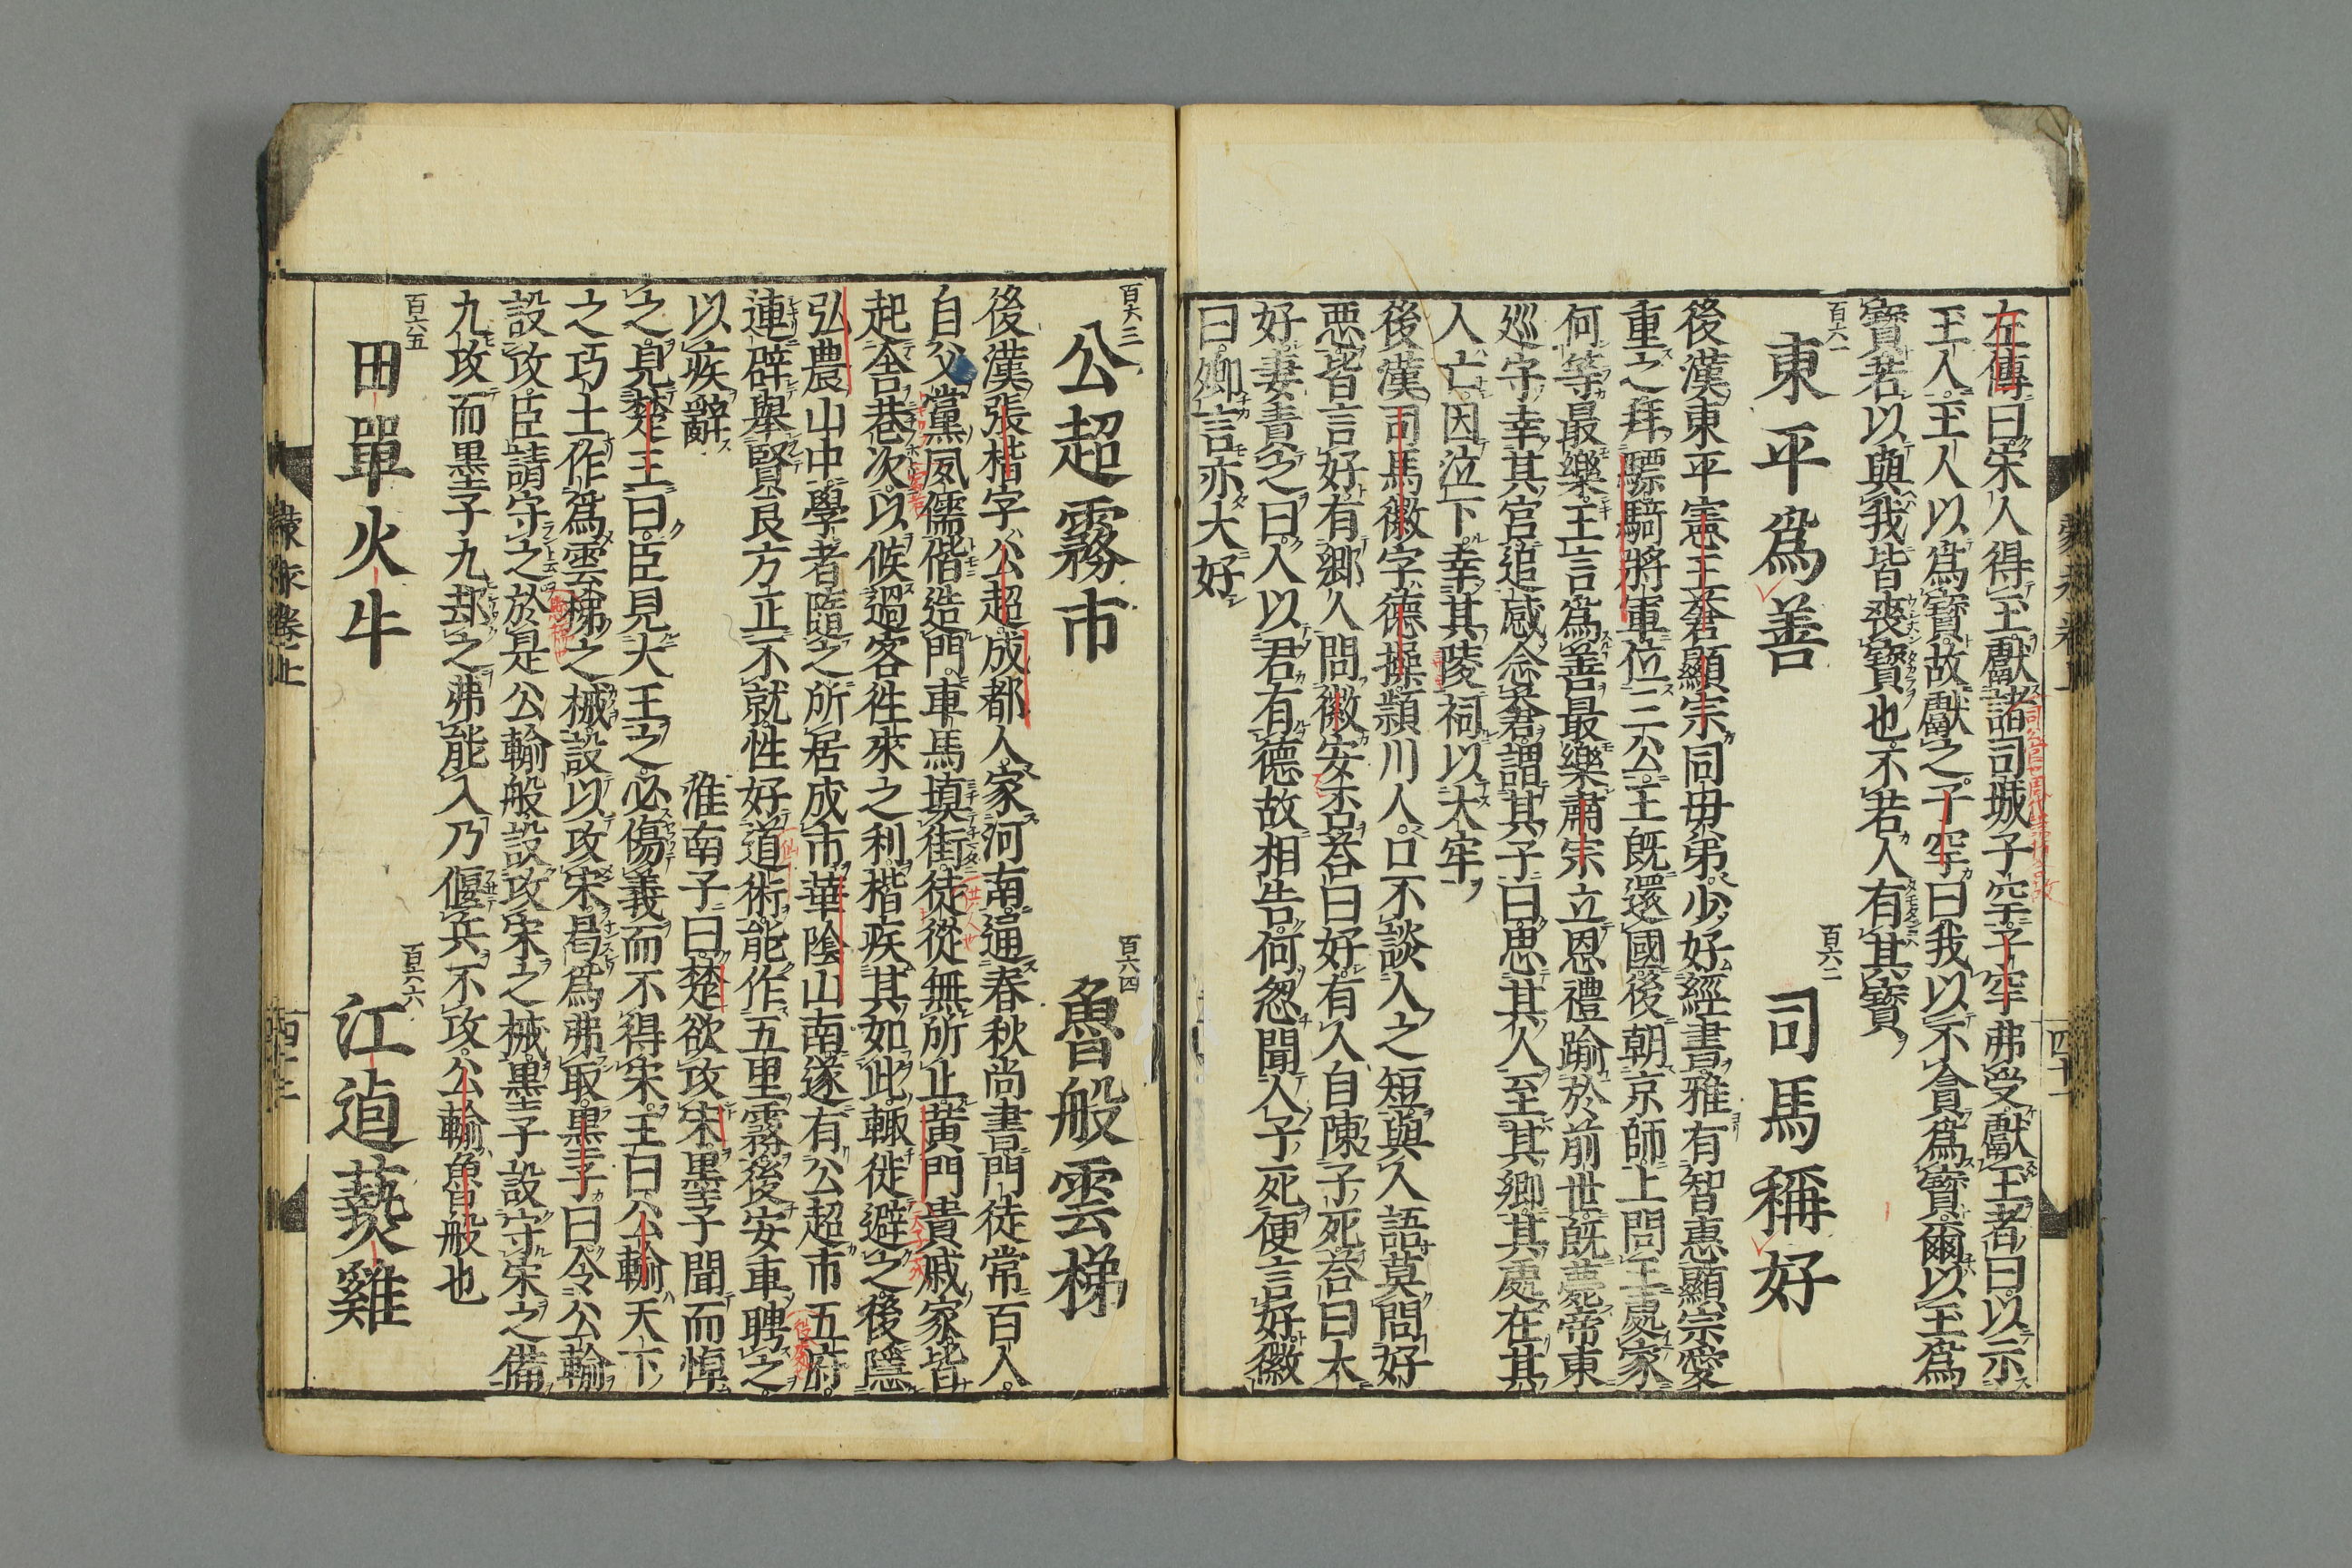 左傳曰宋人得玉獻諸司城子空子罕弗受獻玉者曰以示
玉人玉人以爲寶故獻之子罕曰我以不貪爲寶爾以玉爲
寶若以與我皆喪寶也不若人有其寶
百六一
東平爲善
百六二
司馬稱好
後漢東平憲王蒼顯宗同母弟少好經書雅有智惠顯宗愛
重之拜驃騎將軍位三公王既還國後朝京師上問王處家
何等最樂王言爲善最樂肅宗立恩禮踰於前世既薨帝東
巡守幸其官追感念蒼謂其子曰思其人至其鄉其處在其
人亡因泣下幸其陵祠以太牢
後漢司馬徽字德操潁川人口不談人之短與人語莫問好
惡皆言好有鄉人問徽安否答曰好有人自陳子死答曰大
好妻責之曰人以君有德故相告何忽聞人子死便言好徽
曰卿言亦大好
百六三
公超霧市
百六四
魯般雲梯
後漢張楷字公超成都人家河南通春秋尚書門徒常百人
自父黨夙儒偕造門車馬填街徒從無所止黃門貴戚家皆
起舍巷次以候過客往來之利楷疾其如此輒徙避之後隱
弘農山中學者隨之所居成市華陰山南遂有公超市五府
連辟舉賢良方正不就性好道術能作五里霧後安車聘之
以疾辭
淮南子曰楚欲攻宋墨子聞而悼
之見楚王曰臣見大王之必傷義而不得宋王曰公輸天下
之巧士作爲雲梯之械設以攻宋曷爲弗取墨子曰令公輸
設攻臣請守之於是公輸般設攻宋之械墨子設守宋之備
九攻而墨子九却之弗能入乃偃兵不攻公輸魯般也
百六五
田單火牛
百六六
江逌爇雞
蒙求卷上